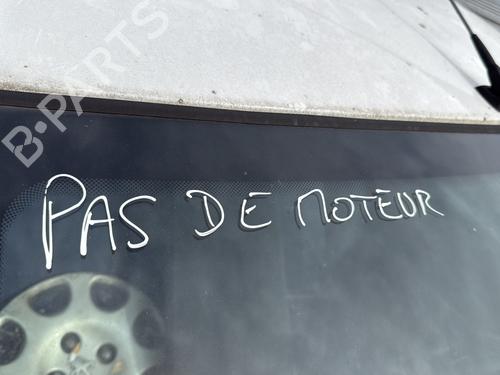 B-PARTS
PAS DE MOTEUR